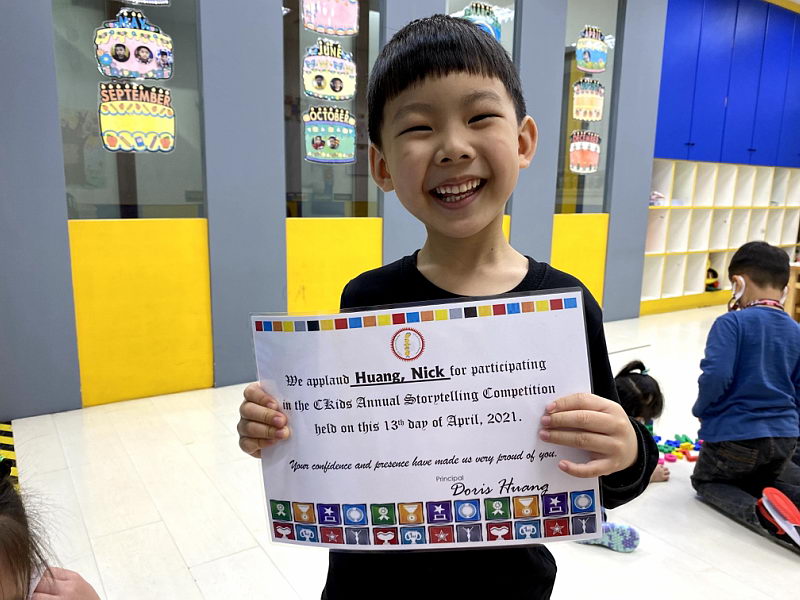 SEPTEMBER
JUNE
OCTOBER
We applaud Huang, Nick for participating
in the CKids Annual Storytelling Competition
held on this 13th day of April, 2021.
Your confidence and presence have made us very proud of you.
Principal
Doris Huang